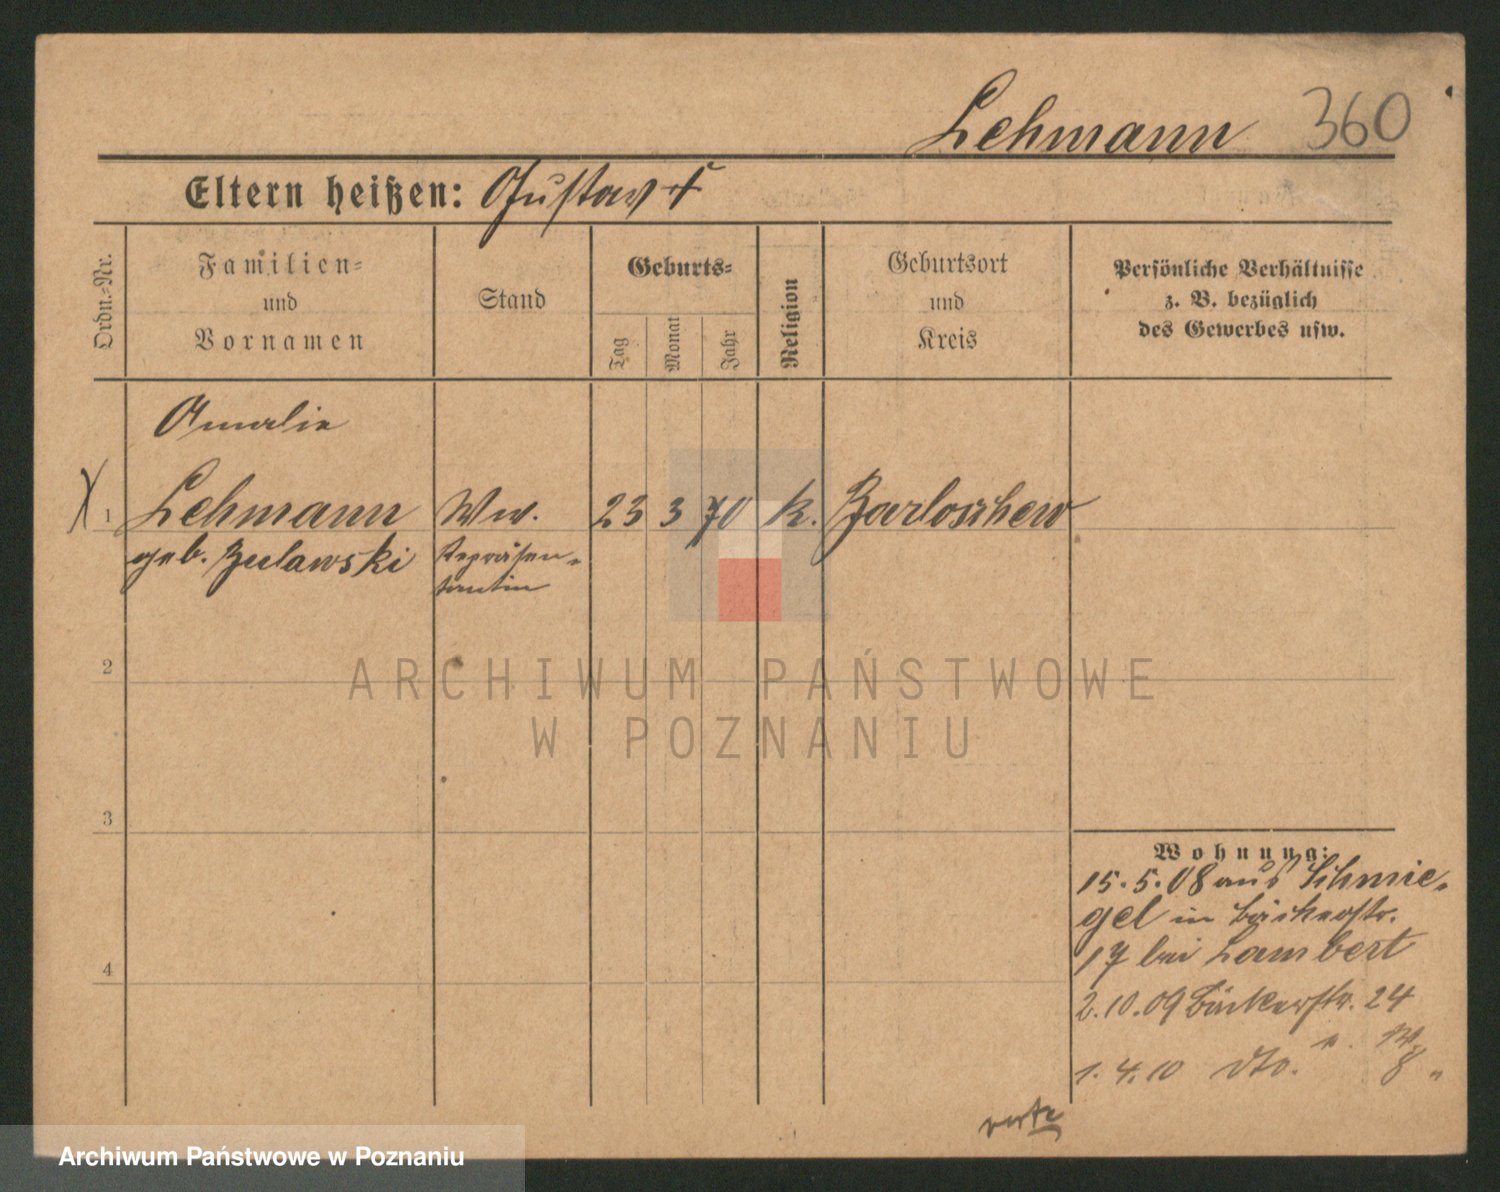 Lehmann 360
Eltern heißen: Gustav †
Ordn.-Nr.
Familien-
und
Vornamen
Stand
Geburts-
Tag
Monat
Jahr
Religion
Geburtsort
und
Kreis
Persönliche Verhältnisse
z. B. bezüglich
des Gewerbes usw.
Amalie
1 Lehmann Ww. 23 3 70 k. Zarloschew
geb. Zulawski Repräsen-
tantin
2
ARCHIWUM PAŃSTWOWE
W POZNANIU
3
Wohnung:
15.5.08 aus Schmie-
gel in Bäckerstr.
17 bei Lambert
4
2.10.09 Bäckerstr. 24
1.4.10 dto. 8
verte
Archiwum Państwowe w Poznaniu